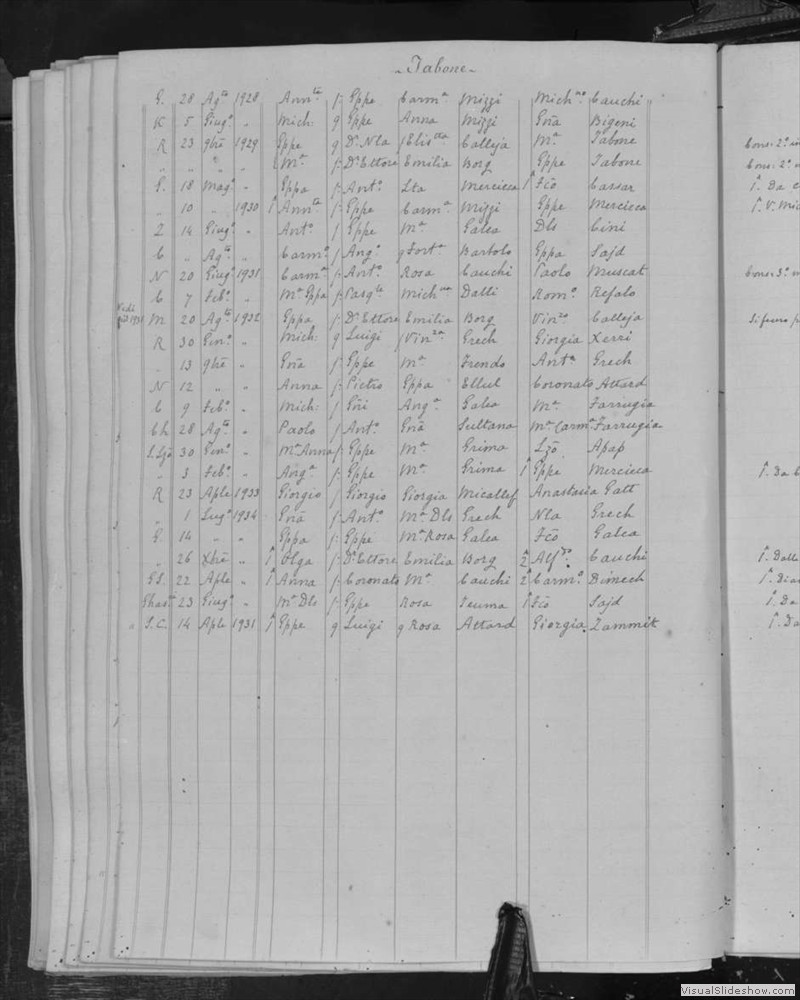 Tabone
G. 28 Ag.to 1928 Ann.ta f. Gppe Carm.a Mizzi Mich.no Cauchi
K 5 Giug.o „ Mich: g Gppe Anna Mizzi Gña Bigeni
R 23 9bre 1929 Gppe g Dr. Nla f Elis.tta Calleja M.a Tabone Cons: 2.o
„ „ „ „ M.a f. Dr. Ettore Emilia Borg Gppe Tabone Cons: 2.o
G. 18 Mag.o „ Gppa f. Ant.o Lta Mercieca 1 Fco Cassar 1. Da
„ 10 „ 1930 1 Ann.ta f. Gppe Carm.a Mizzi Gppe Mercieca 1. V.
Z 14 Giug.o „ Ant.o f Gppe M.a Galea Dls Cini
C „ Ag.to „ Carm.o f Ang.o g Fort.a Bartolo Gppa Sajd
N 20 Giug.o 1931 Carm.a f. Ant.o Rosa Cauchi Paolo Muscat Cons: 3.o
C 7 Feb.o „ M.a Gppa f. Pasq.le Mich.na Dalli Rom.o Refalo
Vedi
M 20 Ag.to 1932 Gppa f. Dr. Ettore Emilia Borg Vin.zo Calleja
R 30 Gen.o „ Mich: g Luigi f Vin.za Grech Giorgia Xerri
„ 13 9bre „ Gña f. Gppe M.a Frendo Ant.a Grech
N 12 „ „ Anna f. Pietro Gppa Ellul Coronato Attard
C 9 Feb.o „ Mich: f. Gñi Ang.a Galea M.a Farrugia
Ch 28 Ag.to „ Paolo f. Ant.o Gña Sultana M.a Carm.a Farrugia
S. Lzo 30 Gen.o „ M.a Anna f. Gppe M.a Grima Lzo Apap
„ 3 Feb.o „ Ang.a f. Gppe M.a Grima 1 Gppe Mercieca 1. Da
R 23 Aple 1933 Giorgio f. Giorgio Giorgia Micallef Anastasia Gatt
„ 1 Lug.o 1934 Gña f. Ant.o M.a Dls Grech Nla Grech
G. 14 „ „ Gppa f. Gppe M.a Rosa Galea Fco Galea
„ 26 Xbre „ 1 Olga f. Dr. Ettore Emilia Borg 2 Alf.do Cauchi 1. Dalle
GS. 22 Aple „ 1 Anna f. Coronato M.a Cauchi 2 Carm.o Dimech 1.
Ghas. 23 Giug.o „ M.a Dls f. Gppe Rosa Teuma 1 Fco Sajd 1. Da
„ S.C. 14 Aple 1931 1 Gppe g Luigi g Rosa Attard Giorgia Zammit 1. Da
VisualSlideshow.com